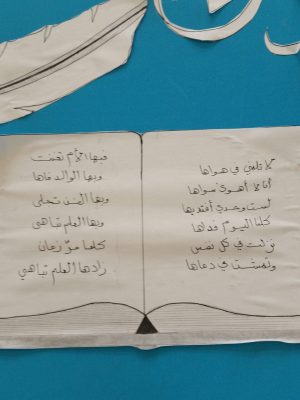 لا تلمني في هواها
أنا لا أهوى سواها
لست وحدي أفتديها
كلنا اليوم فداها
نزلت في كل نفس
وتمشت في دماها
فبها الأم تغنت
وبها الوالد فاها
وبها الفن تجلى
وبها العلم تباهى
كلما مرّ زمان
زادها العلم تباهي